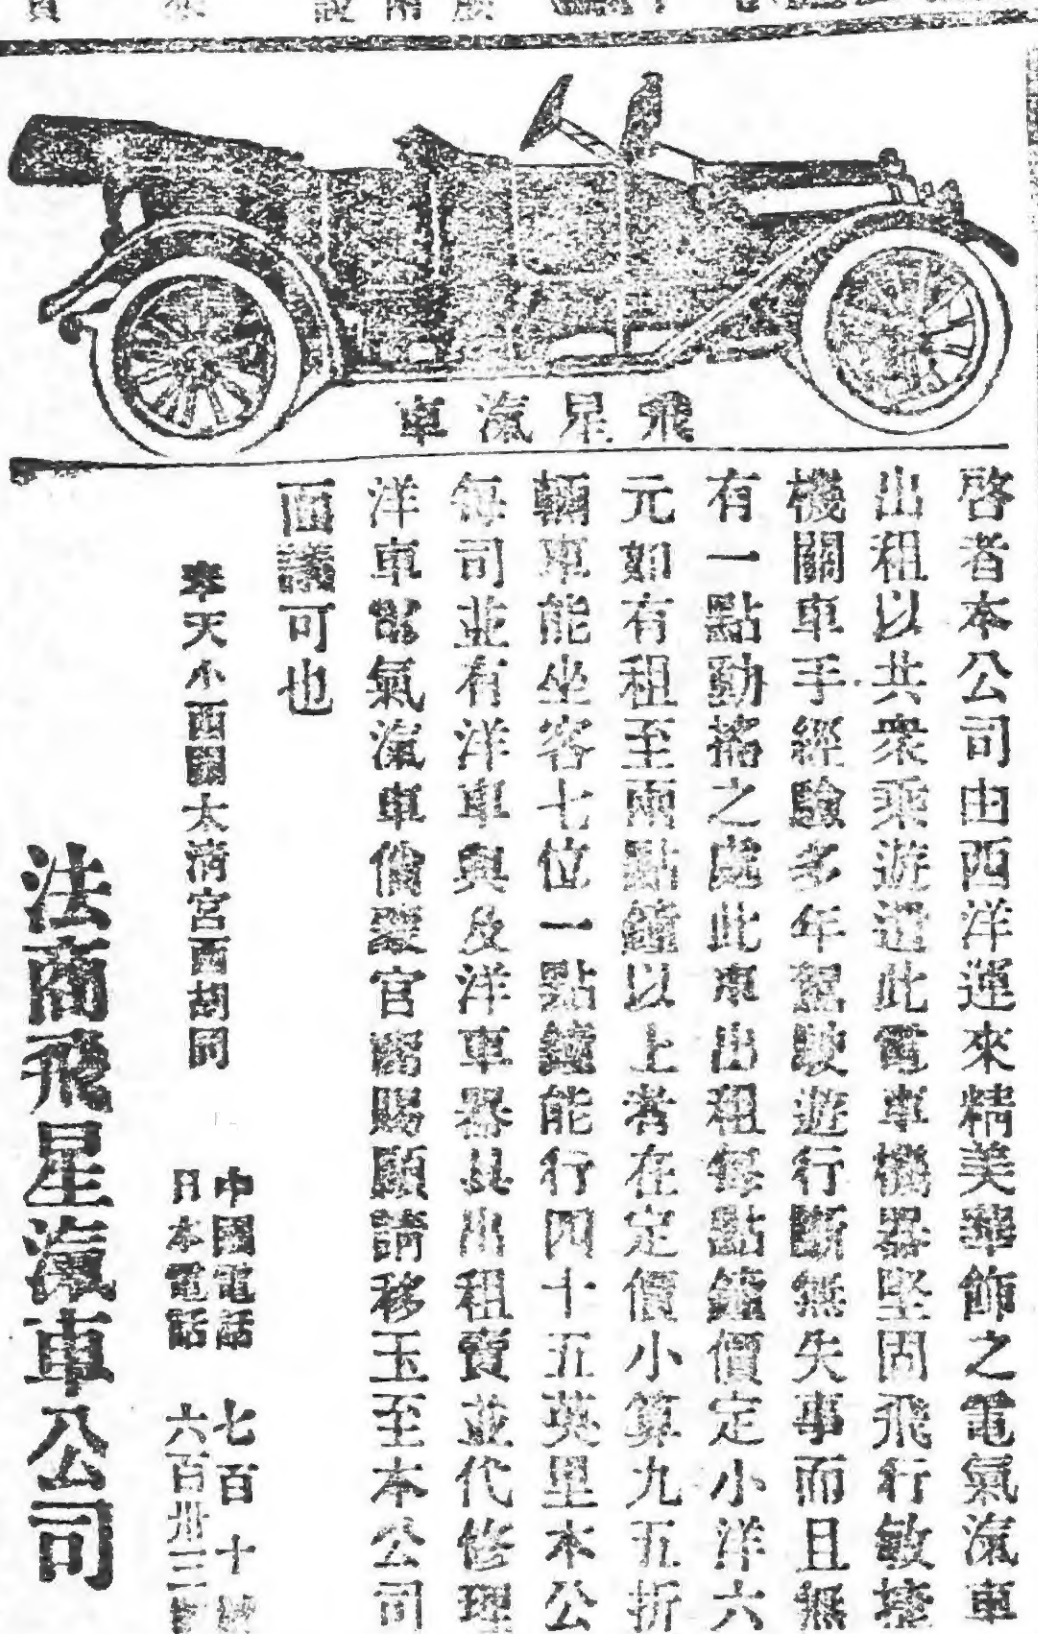 車汽星飛
啓者本公司由西洋運來精美華飾之電氣汽車
出租以共衆乘遊週此電車機器堅固飛行敏捷
機關車手經驗多年駕駛遊行斷無失事而且無
有一點動搖之處此車出租每點鐘價定小洋六
元如有租至兩點鐘以上者在定價小算九五折
輛車能坐客七位一點鐘能行四十五英里本公
每司並有洋車與及洋車器具出租賣並代修理
洋車電氣汽車倘蒙官商賜顧請移玉至本公司
面議可也
奉天小西關太清宮西胡同
中國電話 七百十號
日本電話 六百卅三號
法商飛星汽車公司